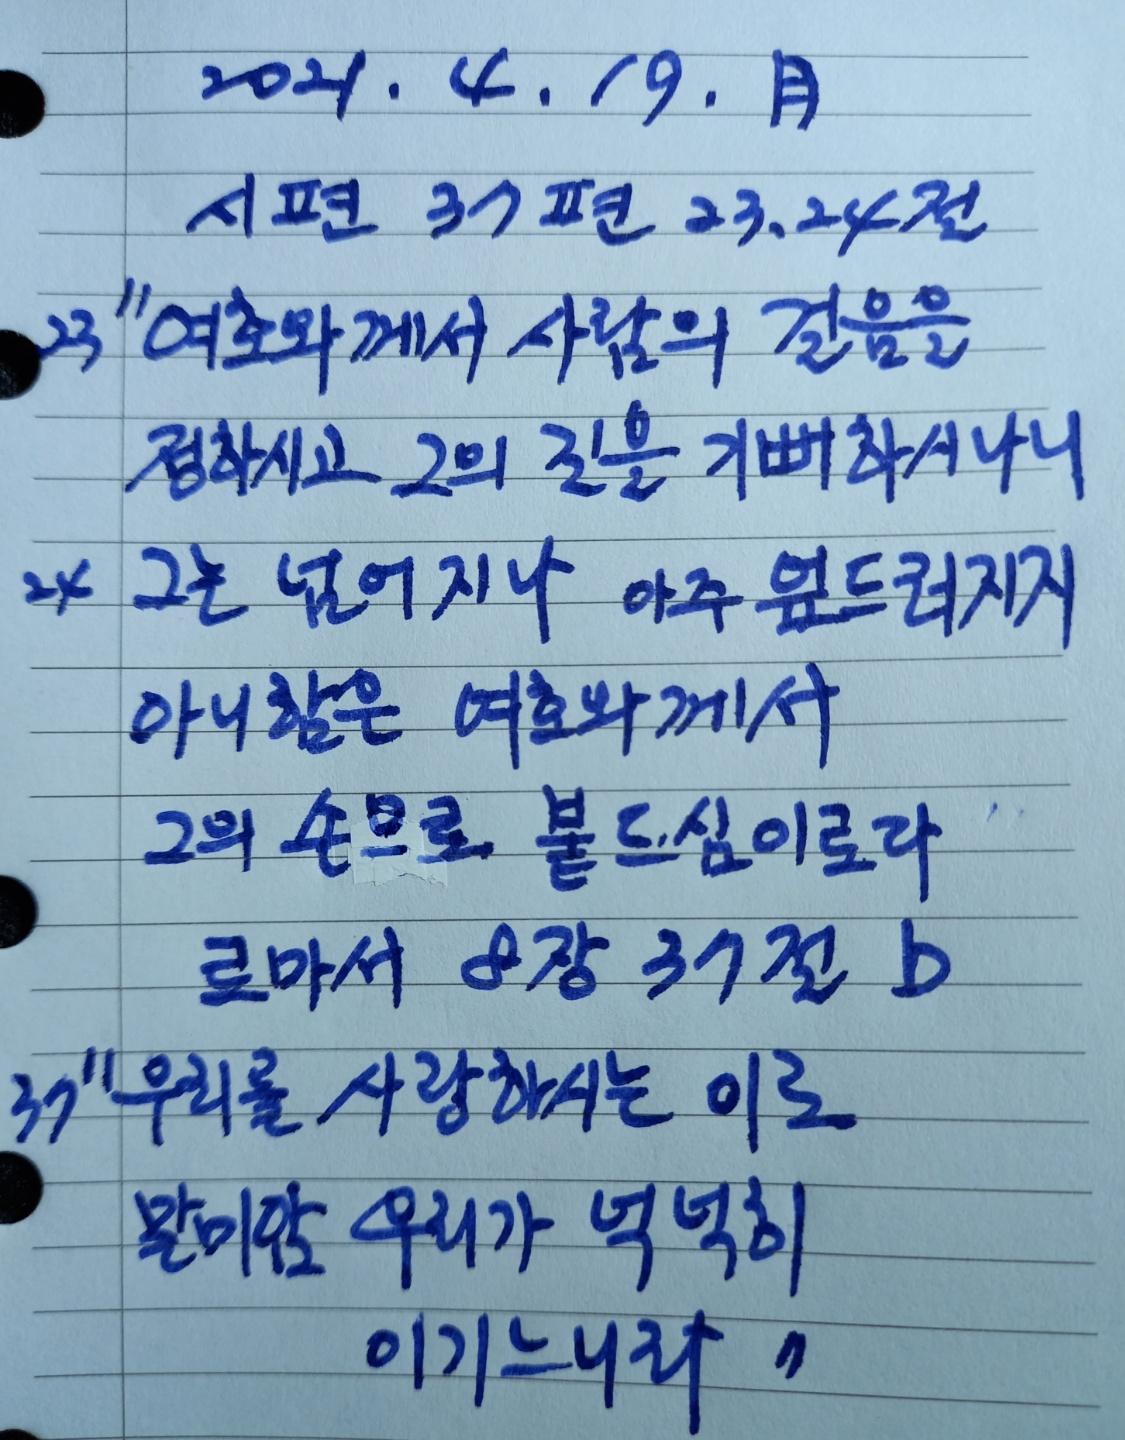 2021. 4. 19. 月
시편 37편 23, 24절
23 "여호와께서 사람의 걸음을
정하시고 그의 길을 기뻐하시나니
24 그는 넘어지나 아주 엎드러지지
아니함은 여호와께서
그의 손으로 붙드심이로다
로마서 8장 37절 b
37 "우리를 사랑하시는 이로
말미암 우리가 넉넉히
이기느니라 "